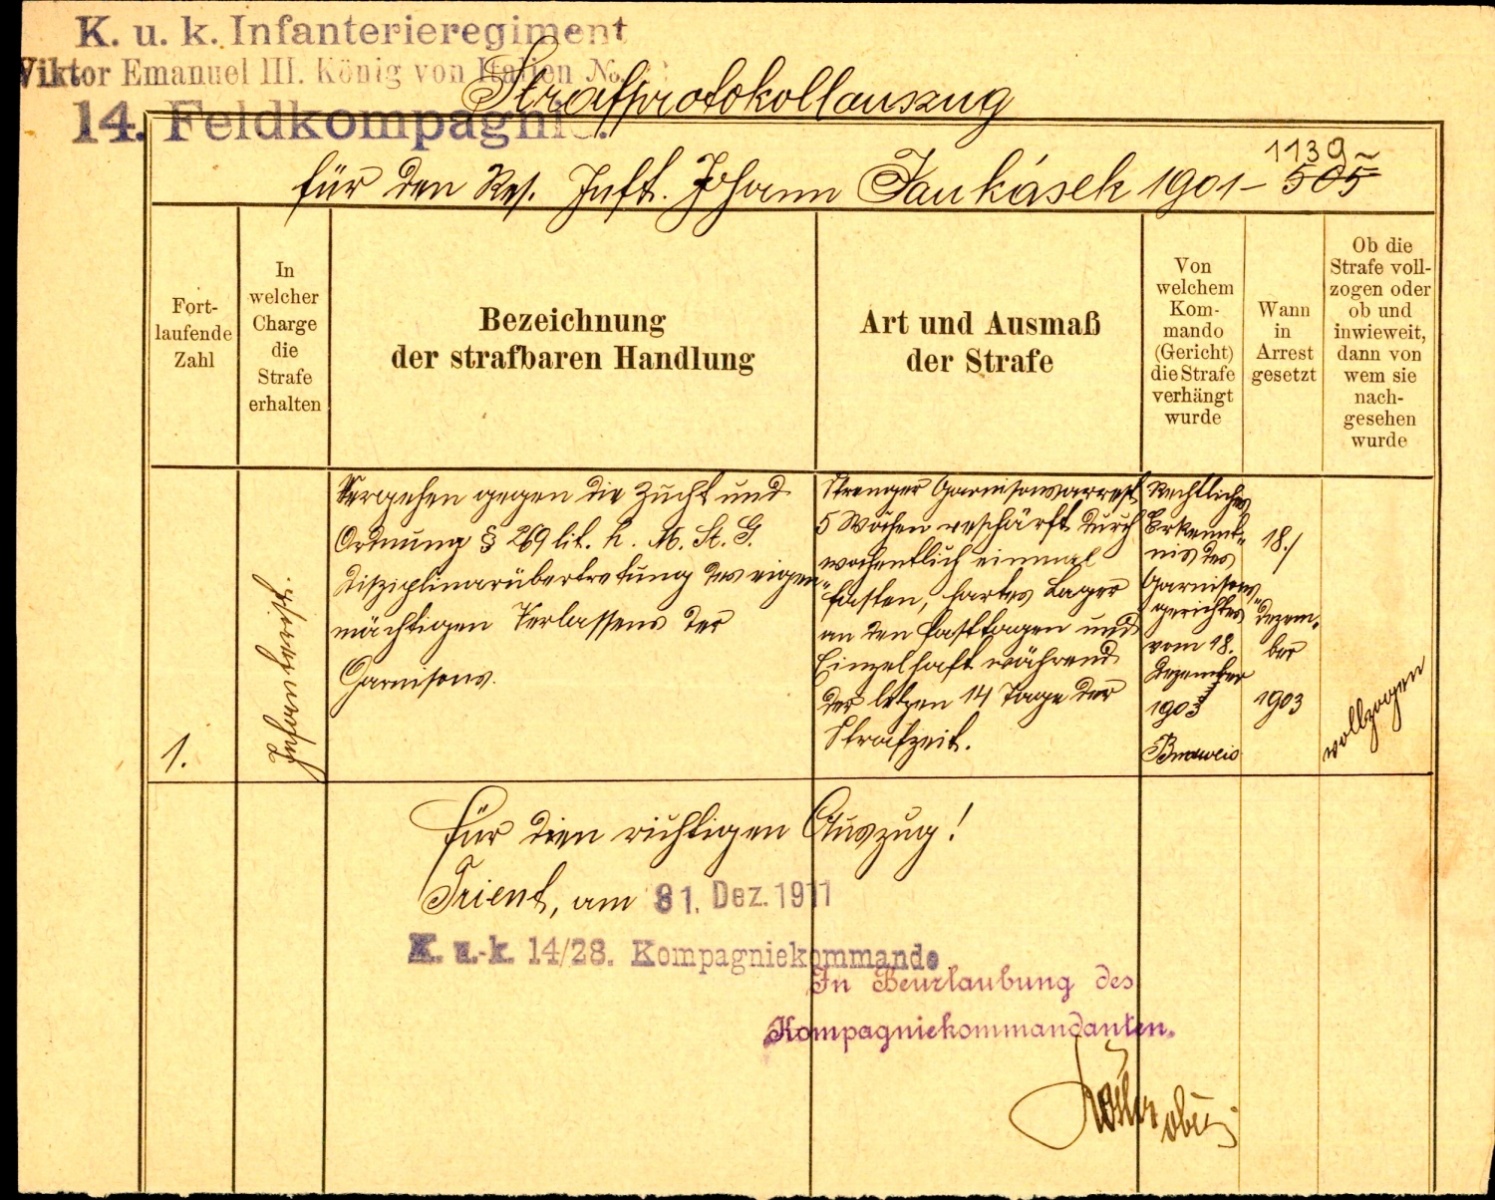 K. u. k. Infanterieregiment
Viktor Emanuel III. König von Italien No.
14. Feldkompagnie.
Strafprotokollauszug
für den Res. Inft. Johann Jaukásek 1901 – 505
1139
Fort-
laufende
Zahl
In
welcher
Charge
die
Strafe
erhalten
Bezeichnung
der strafbaren Handlung
Art und Ausmaß
der Strafe
Von
welchem
Kom-
mando
(Gericht)
die Strafe
verhängt
wurde
Wann
in
Arrest
gesetzt
Ob die
Strafe voll-
zogen oder
ob und
inwieweit,
dann von
wem sie
nach-
gesehen
wurde
1.
Vergehen gegen die Zucht und
Ordnung § 269 lit. h. M. St. G.
Disziplinarübertretung des eigen-
mächtigen Verlassens der
Garnisons.
Strenger Garnisonsarrest
5 Wochen verschärft durch
wochentlich einmal
fasten, hartes Lager
an den Fasttagen und
Einzelhaft während
der letzen 14 Tage der
Strafzeit.
Rechtliches
Erkennt-
nis des
Garnisons-
gerichtes
vom 18.
Dezember
1903
18./
Dezem-
ber
1903
vollzogen
Für den richtigen Auszug!
Trient, am 31. Dez. 1911
K. u. k. 14/28. Kompagniekommando
In Beurlaubung des
Kompagniekommandanten.